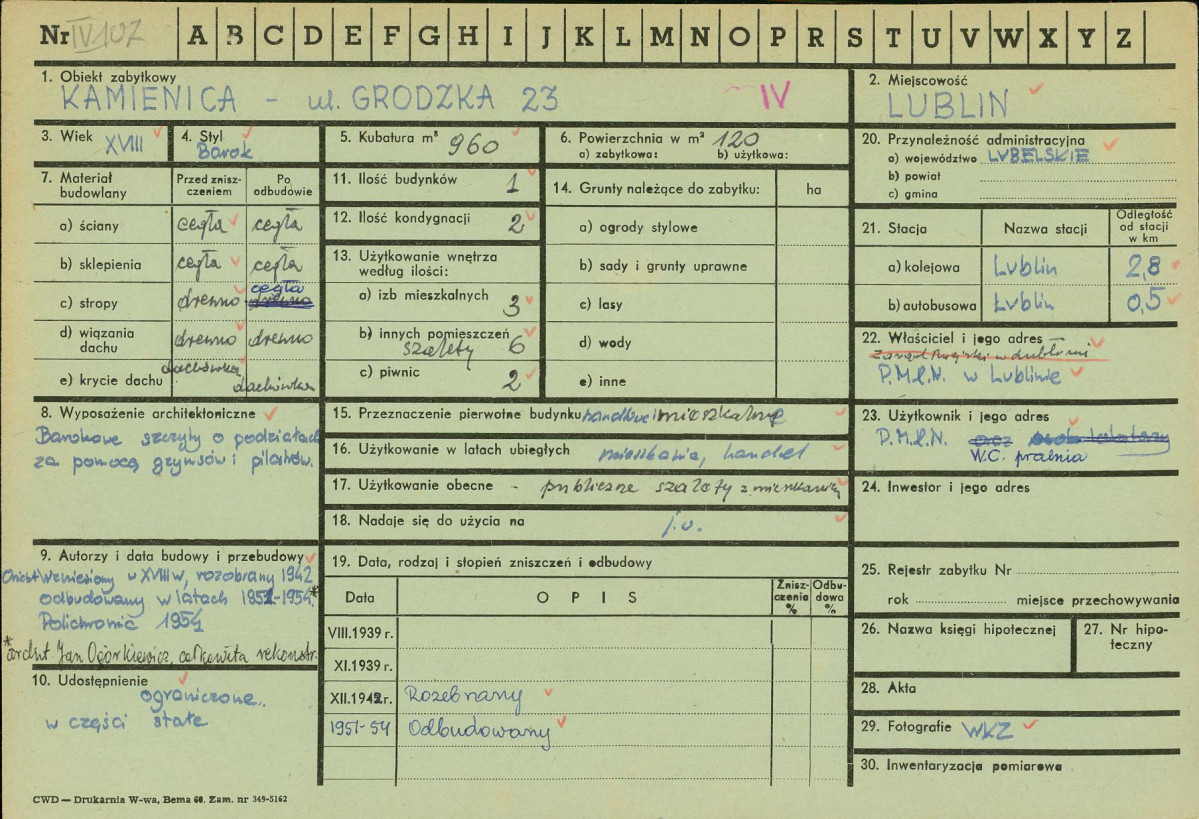 Nr IV 107 A B C D E F G H I J K L M N O P R S T U V W X Y Z
1. Obiekt zabytkowy
KAMIENICA - ul. GRODZKA 23 IV
2. Miejscowość
LUBLIN
3. Wiek XVIII
4. Styl
Barok
5. Kubatura m³ 960
6. Powierzchnia w m² 120
a) zabytkowa: b) użytkowa:
20. Przynależność administracyjna
a) województwo LUBELSKIE
b) powiat
c) gmina
7. Materiał budowlany
Przed zniszczeniem
Po odbudowie
a) ściany cegła cegła
b) sklepienia cegła cegła
c) stropy drewno cegła drewno
d) wiązania dachu drewno drewno
e) krycie dachu dachówka dachówka
11. Ilość budynków 1
12. Ilość kondygnacji 2
13. Użytkowanie wnętrza
według ilości:
a) izb mieszkalnych 3
b) innych pomieszczeń 6
szalety
c) piwnic 2
14. Grunty należące do zabytku: ha
a) ogrody stylowe
b) sady i grunty uprawne
c) lasy
d) wody
e) inne
21. Stacja Nazwa stacji Odległość od stacji w km
a) kolejowa Lublin 2,8
b) autobusowa Lublin 0,5
22. Właściciel i jego adres
Zarząd Miejski w Lublinie
P.M.R.N. w Lublinie
8. Wyposażenie architektoniczne
Barokowe szczyty o podziałach
za pomocą gzymsów i pilastrów.
15. Przeznaczenie pierwotne budynku handlowe i mieszkalne
16. Użytkowanie w latach ubiegłych mieszkania, handel
17. Użytkowanie obecne - publiczne szalety z mieszkaniem
18. Nadaje się do użycia na j.w.
23. Użytkownik i jego adres
P.M.R.N. oraz osob lokatorzy
W.C. pralnia
24. Inwestor i jego adres
9. Autorzy i data budowy i przebudowy
Obiekt Wzniesiony w XVIII w, rozebrany 1942
odbudowany w latach 1951-1954.*
Polichromia 1954
* archit Jan Ogórkiewicz, całkowita rekonstr.
10. Udostępnienie
ograniczone,
w części stałe
19. Data, rodzaj i stopień zniszczeń i odbudowy
Data OPIS Zniszczenia % Odbudowa %
VIII.1939 r.
XI.1939 r.
XII.1942 r. Rozebrany
1951-54 Odbudowany
25. Rejestr zabytku Nr
rok miejsce przechowywania
26. Nazwa księgi hipotecznej
27. Nr hipoteczny
28. Akta
29. Fotografie WKZ
30. Inwentaryzacja pomiarowa
CWD — Drukarnia W-wa, Bema 60. Zam. nr 349-5162